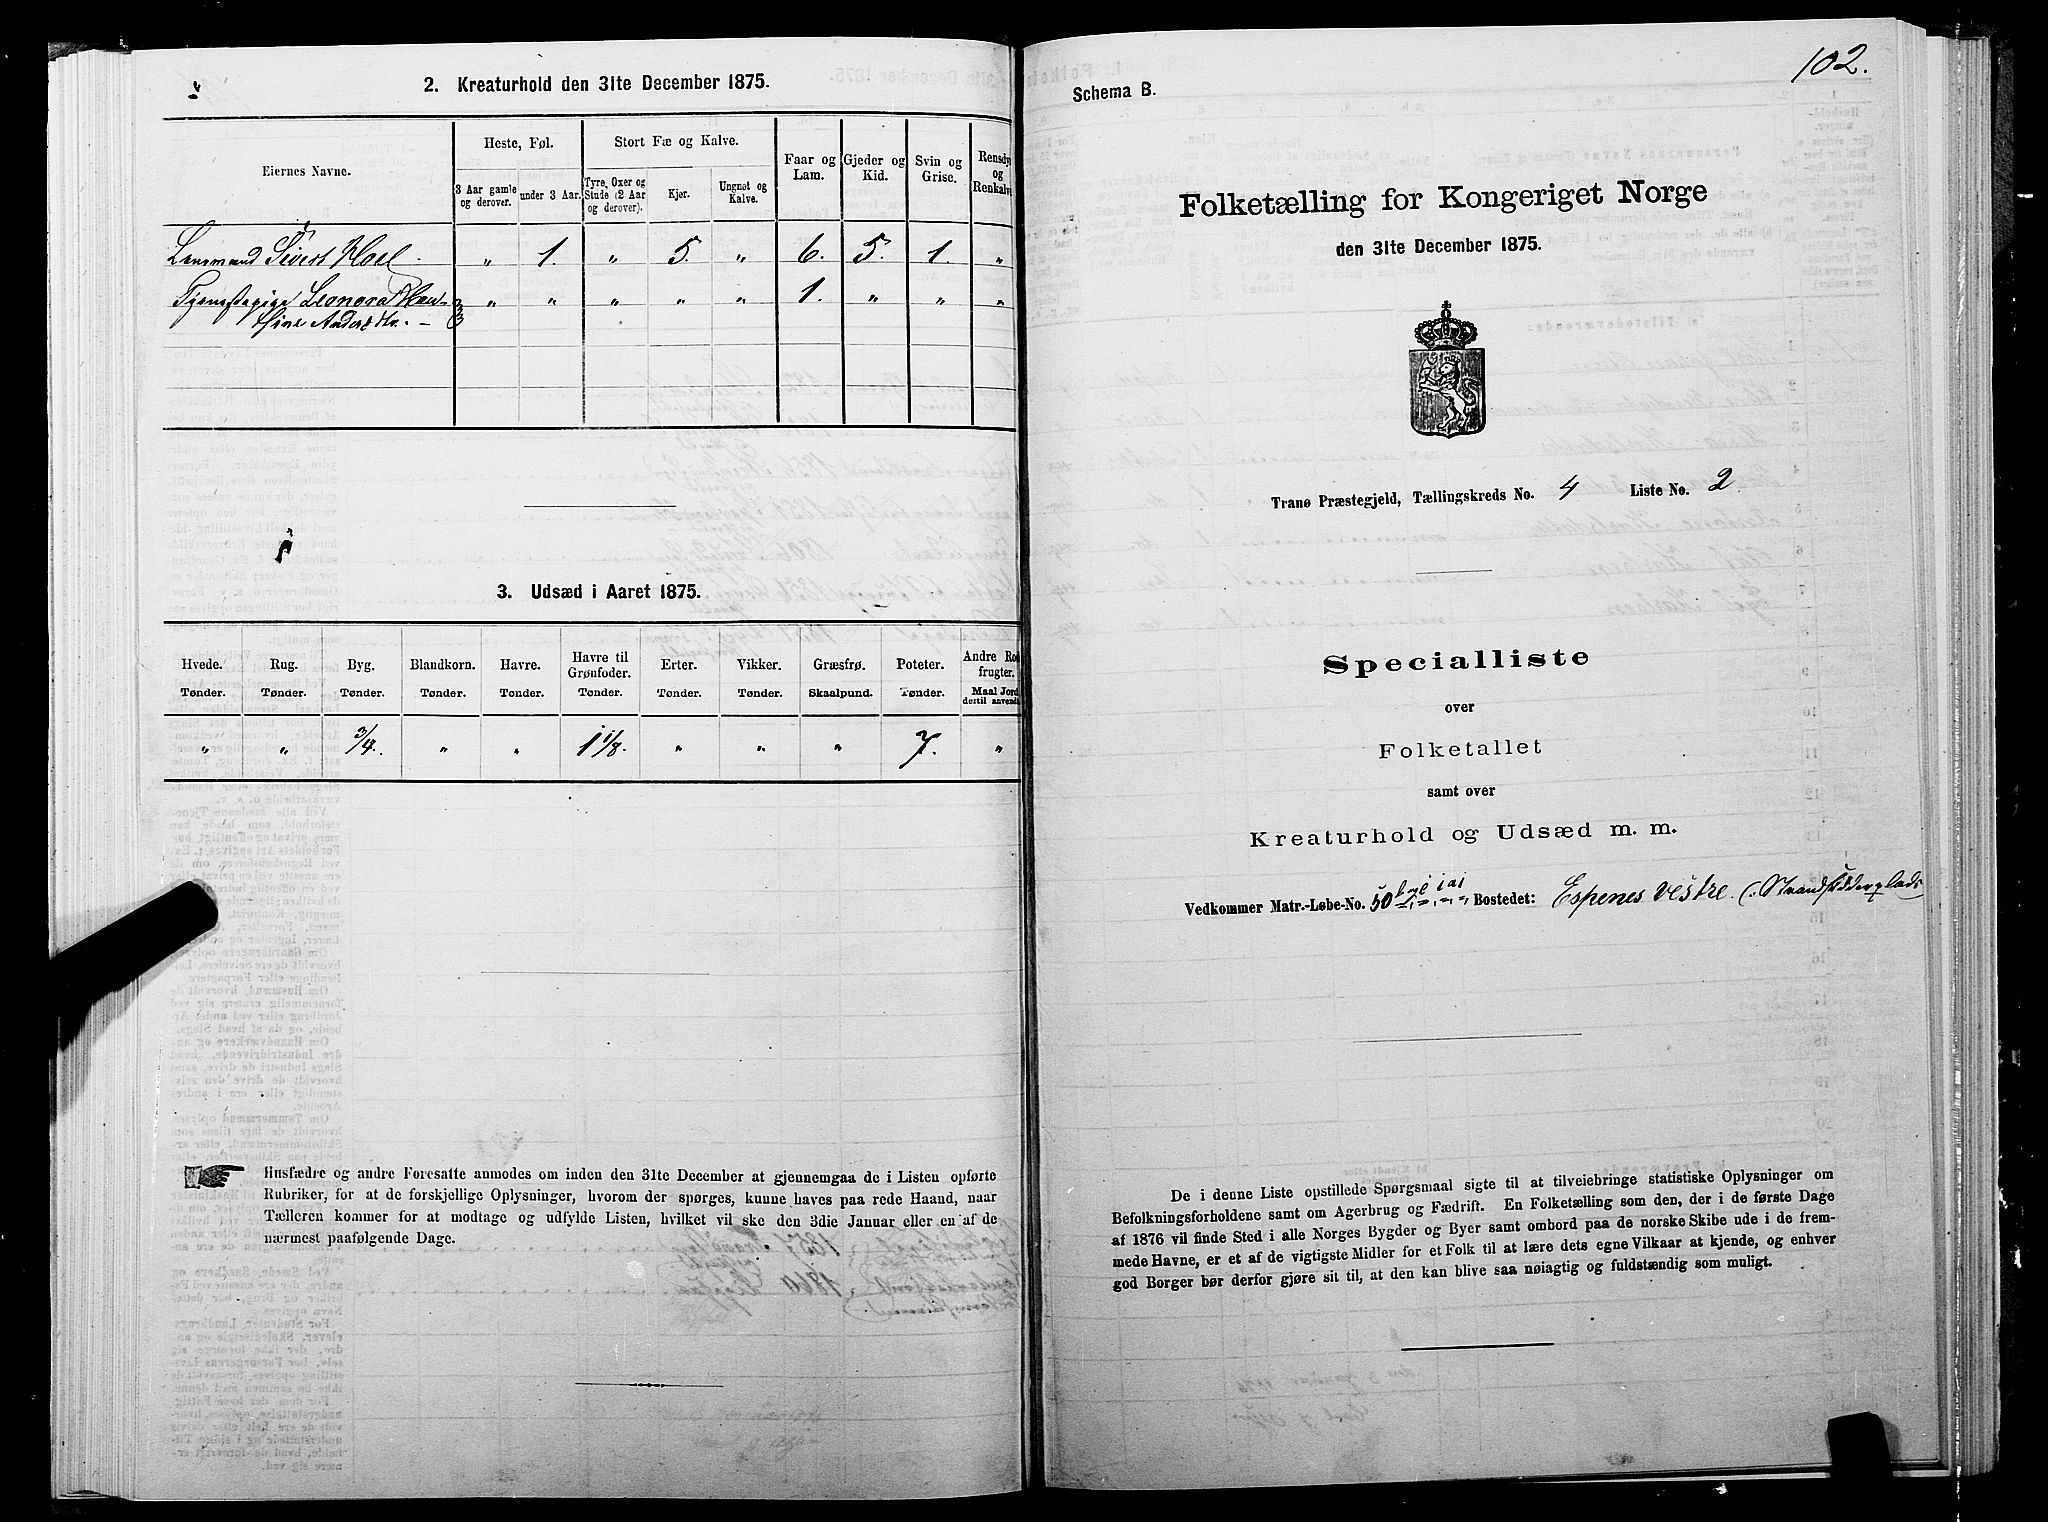 2. Kreaturhold den 31te December 1875.
Eiernes Navne.
Heste, Føl.
Stort Fæ og Kalve.
Faar og Lam.
Gjeder og Kid.
Svin og Grise.
Rensdy
og
Renkalve
3 Aar gamle og derover.
under 3 Aar.
Tyre, Oxer og Stude (2 Aar og derover).
Kjør.
Ungnøt og Kalve.
Lensmand Sivert Hoel „ 1. „ 5. „ 6. 5. 1. „
Tjenestepige Leonora „ „ „ „ „ 1. „ „ „
Andersdtr. —
3. Udsæd i Aaret 1875.
Hvede. Rug. Byg. Blandkorn. Havre. Havre til Grønfoder. Erter. Vikker. Græsfrø. Poteter. Andre Ro
frugter.
Tønder. Tønder. Tønder. Tønder. Tønder. Tønder. Tønder. Tønder. Skaalpund. Tønder. Maal Jord
dertil anvendt
„ „ 3/4. „ „ 1 1/8. „ „ „ 7. „
Husfædre og andre Foresatte anmodes om inden den 31te December at gjennemgaa de i Listen opførte
Rubriker, for at de forskjellige Oplysninger, hvorom der spørges, kunne haves paa rede Haand, naar
Tælleren kommer for at modtage og udfylde Listen, hvilket vil ske den 3die Januar eller en af de
nærmest paafølgende Dage.
102.
Schema B.
Folketælling for Kongeriget Norge
den 31te December 1875.
Tranø Præstegjeld, Tællingskreds No. 4 Liste No. 2.
Specialliste
over
Folketallet
samt over
Kreaturhold og Udsæd m. m.
Vedkommer Matr.-Løbe-No. 50 Bostedet: Espenes vestre. (: Strandsidderplads
De i denne Liste opstillede Spørgsmaal sigte til at tilveiebringe statistiske Oplysninger om
Befolkningsforholdene samt om Agerbrug og Fædrift. En Folketælling som den, der i de første Dage
af 1876 vil finde Sted i alle Norges Bygder og Byer samt ombord paa de norske Skibe ude i de frem-
mede Havne, er et af de vigtigste Midler for et Folk til at lære dets egne Vilkaar at kjende, og enhver
god Borger bør derfor gjøre sit til, at den kan blive saa nøiagtig og fuldstændig som muligt.